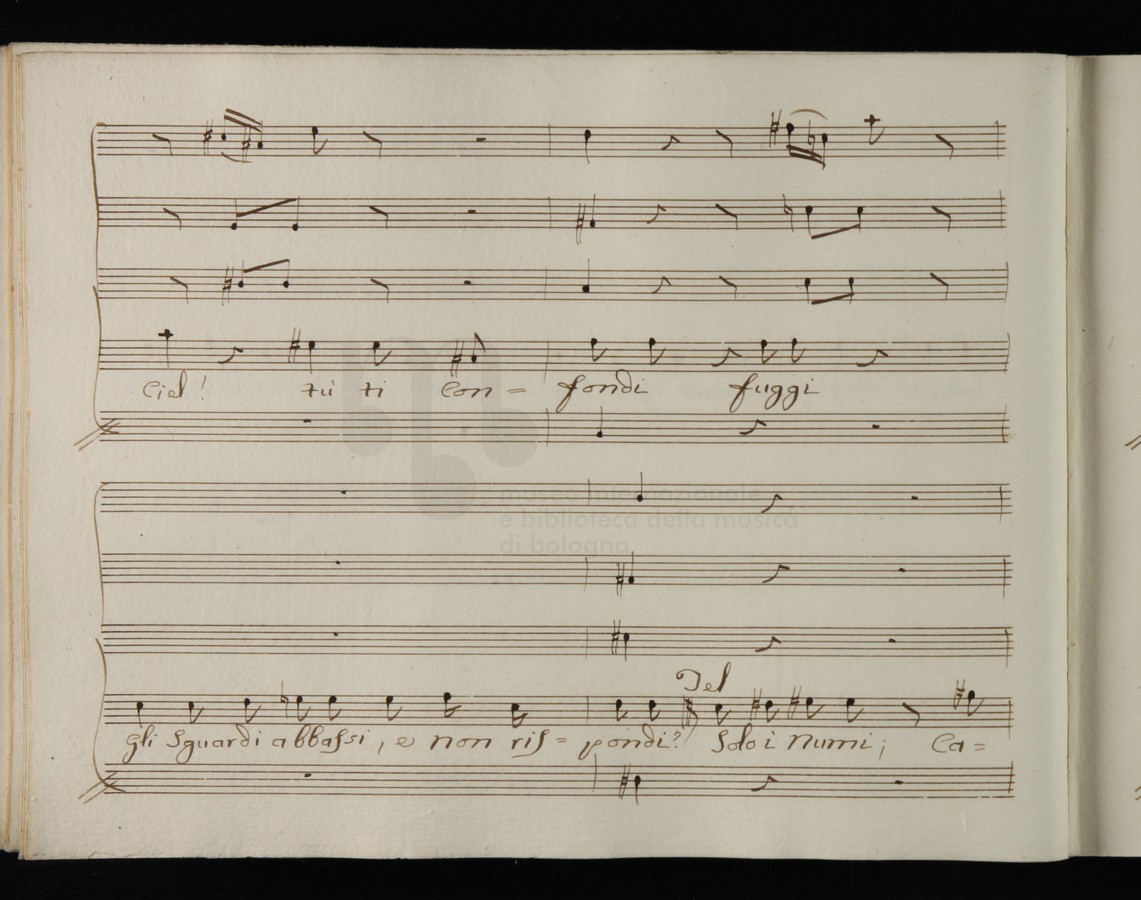 Ciel! tù ti Con= fondi fuggi
museo internazionale
e biblioteca della musica
di bologna
Tel
gli Sguardi abbassi, e non ris= pondi? Solo i Numi; Ca=